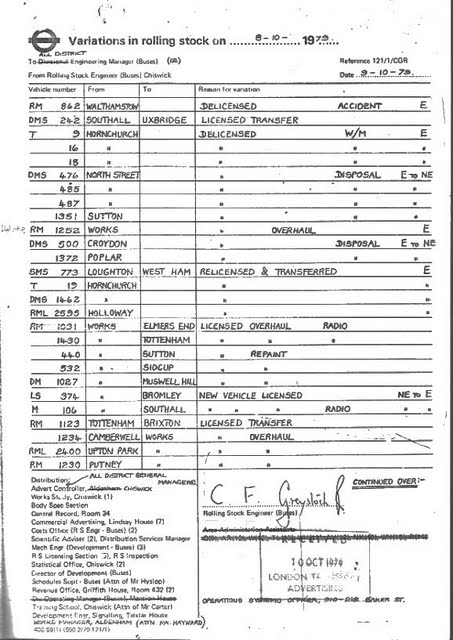 Variations in rolling stock on 8-10- 1979.
ALL DISTRICT
To Divisional Engineering Manager (Buses) Reference 121/1/CGR
From Rolling Stock Engineer (Buses) Chiswick Date 9-10-79.
Vehicle number From To Reason for variation
RM 862 WALTHAMSTOW DELICENSED ACCIDENT E
DMS 242 SOUTHALL UXBRIDGE LICENSED TRANSFER
T 9 HORNCHURCH DELICENSED W/M E
16 " " " "
18 " " " "
DMS 476 NORTH STREET " DISPOSAL E TO NE
485 " " " "
487 " " " "
1351 SUTTON " " "
RM 1252 WORKS " OVERHAUL E
DMS 500 CROYDON " DISPOSAL E TO NE
1372 POPLAR " " "
SMS 773 LOUGHTON WEST HAM RELICENSED & TRANSFERRED E
T 19 HORNCHURCH " "
DMS 1462 " " "
RML 2595 HOLLOWAY " "
RM 1031 WORKS ELMERS END LICENSED OVERHAUL RADIO
1430 " TOTTENHAM " " "
440 " SUTTON " REPAINT
532 " SIDCUP " "
DM 1027 " MUSWELL HILL " "
LS 374 " BROMLEY NEW VEHICLE LICENSED NE TO E
M 106 " SOUTHALL " " " RADIO "
RM 1123 TOTTENHAM BRIXTON LICENSED TRANSFER
1234 CAMBERWELL WORKS " OVERHAUL
RML 2400 UPTON PARK " " "
RM 1230 PUTNEY " " "
ALL DISTRICT GENERAL MANAGERS
Distribution:
CONTINUED OVER:-
Advert Controller, Aldenham CHISWICK
Works Study, Chiswick (1)
Body Spec Section
Central Record, Room 34
Rolling Stock Engineer (Buses)
Commercial Advertising, Lindsay House (7)
Costs Office (R S Engr - Buses) (2)
Scientific Adviser (2), Distribution Services Manager
RECEIVED
Mech Engr (Development - Buses) (3)
R S Licensing Section, R S Inspection
10 OCT 1979
Statistical Office, Chiswick (2)
Director of Development (Buses)
LONDON TRANSPORT
Schedules Supt - Buses (Attn of Mr Hyslop)
ADVERTISING
Revenue Office, Griffith House, Room 432 (2)
Training School, Chiswick (Attn of Mr Carter)
OPERATIONS SYSTEMS OFFICER, BAKER ST.
Development Engr, Signalling, Telstar House
WORKS MANAGER, ALDENHAM (ATTN MR. HAYWARD)